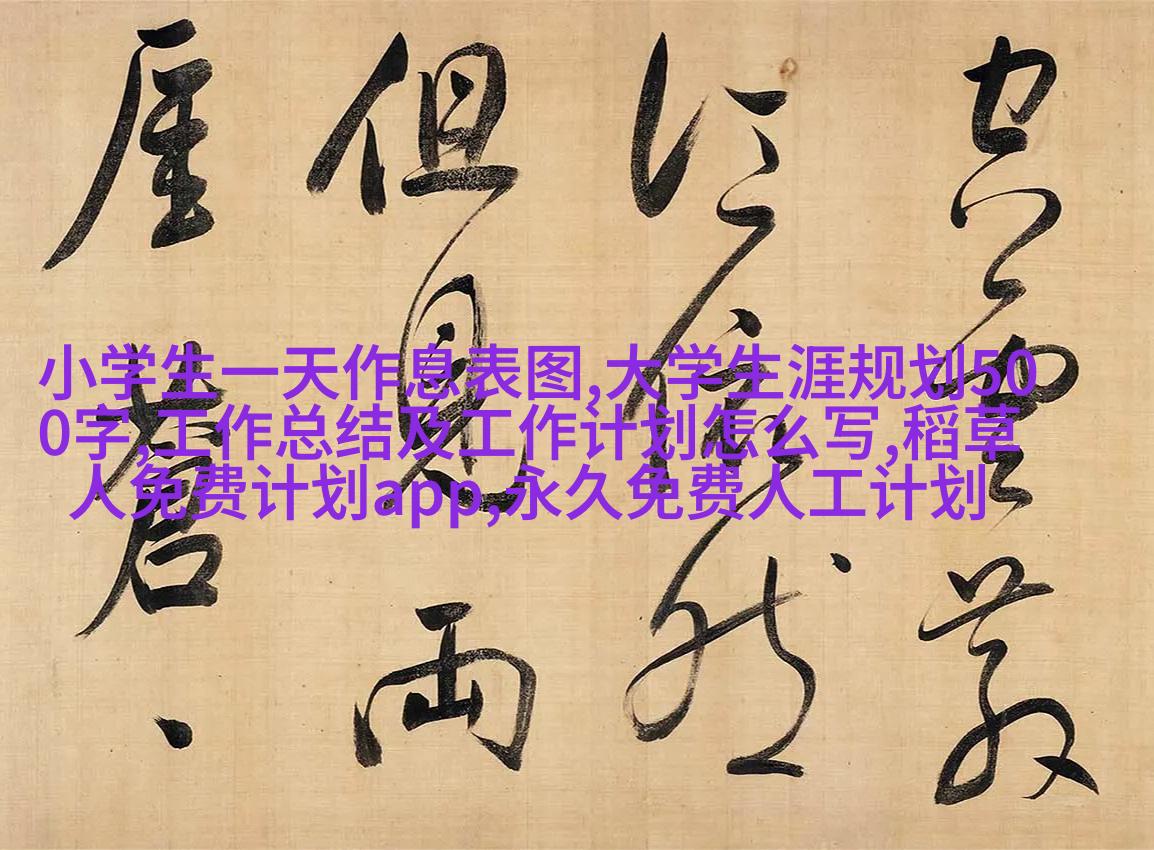 小学生一天作息表图,大学生涯规划50
0字,工作总结及工作计划怎么写,稻草
人免费计划app,永久免费人工计划
空雲散
然
但見兩
崖蒼